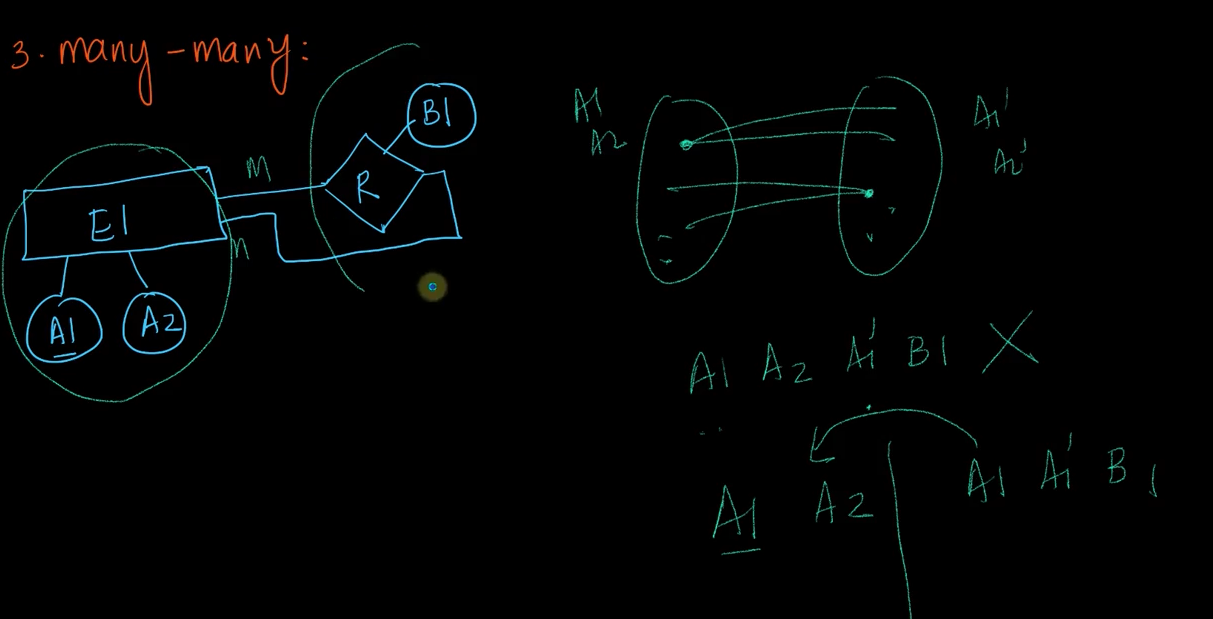 3. many-many:
B1
M
R
E1
n
A1
A2
A1
A2
A1'
A2'
A1 A2 A1' B1 X
A1 A2
A1 A1' B1